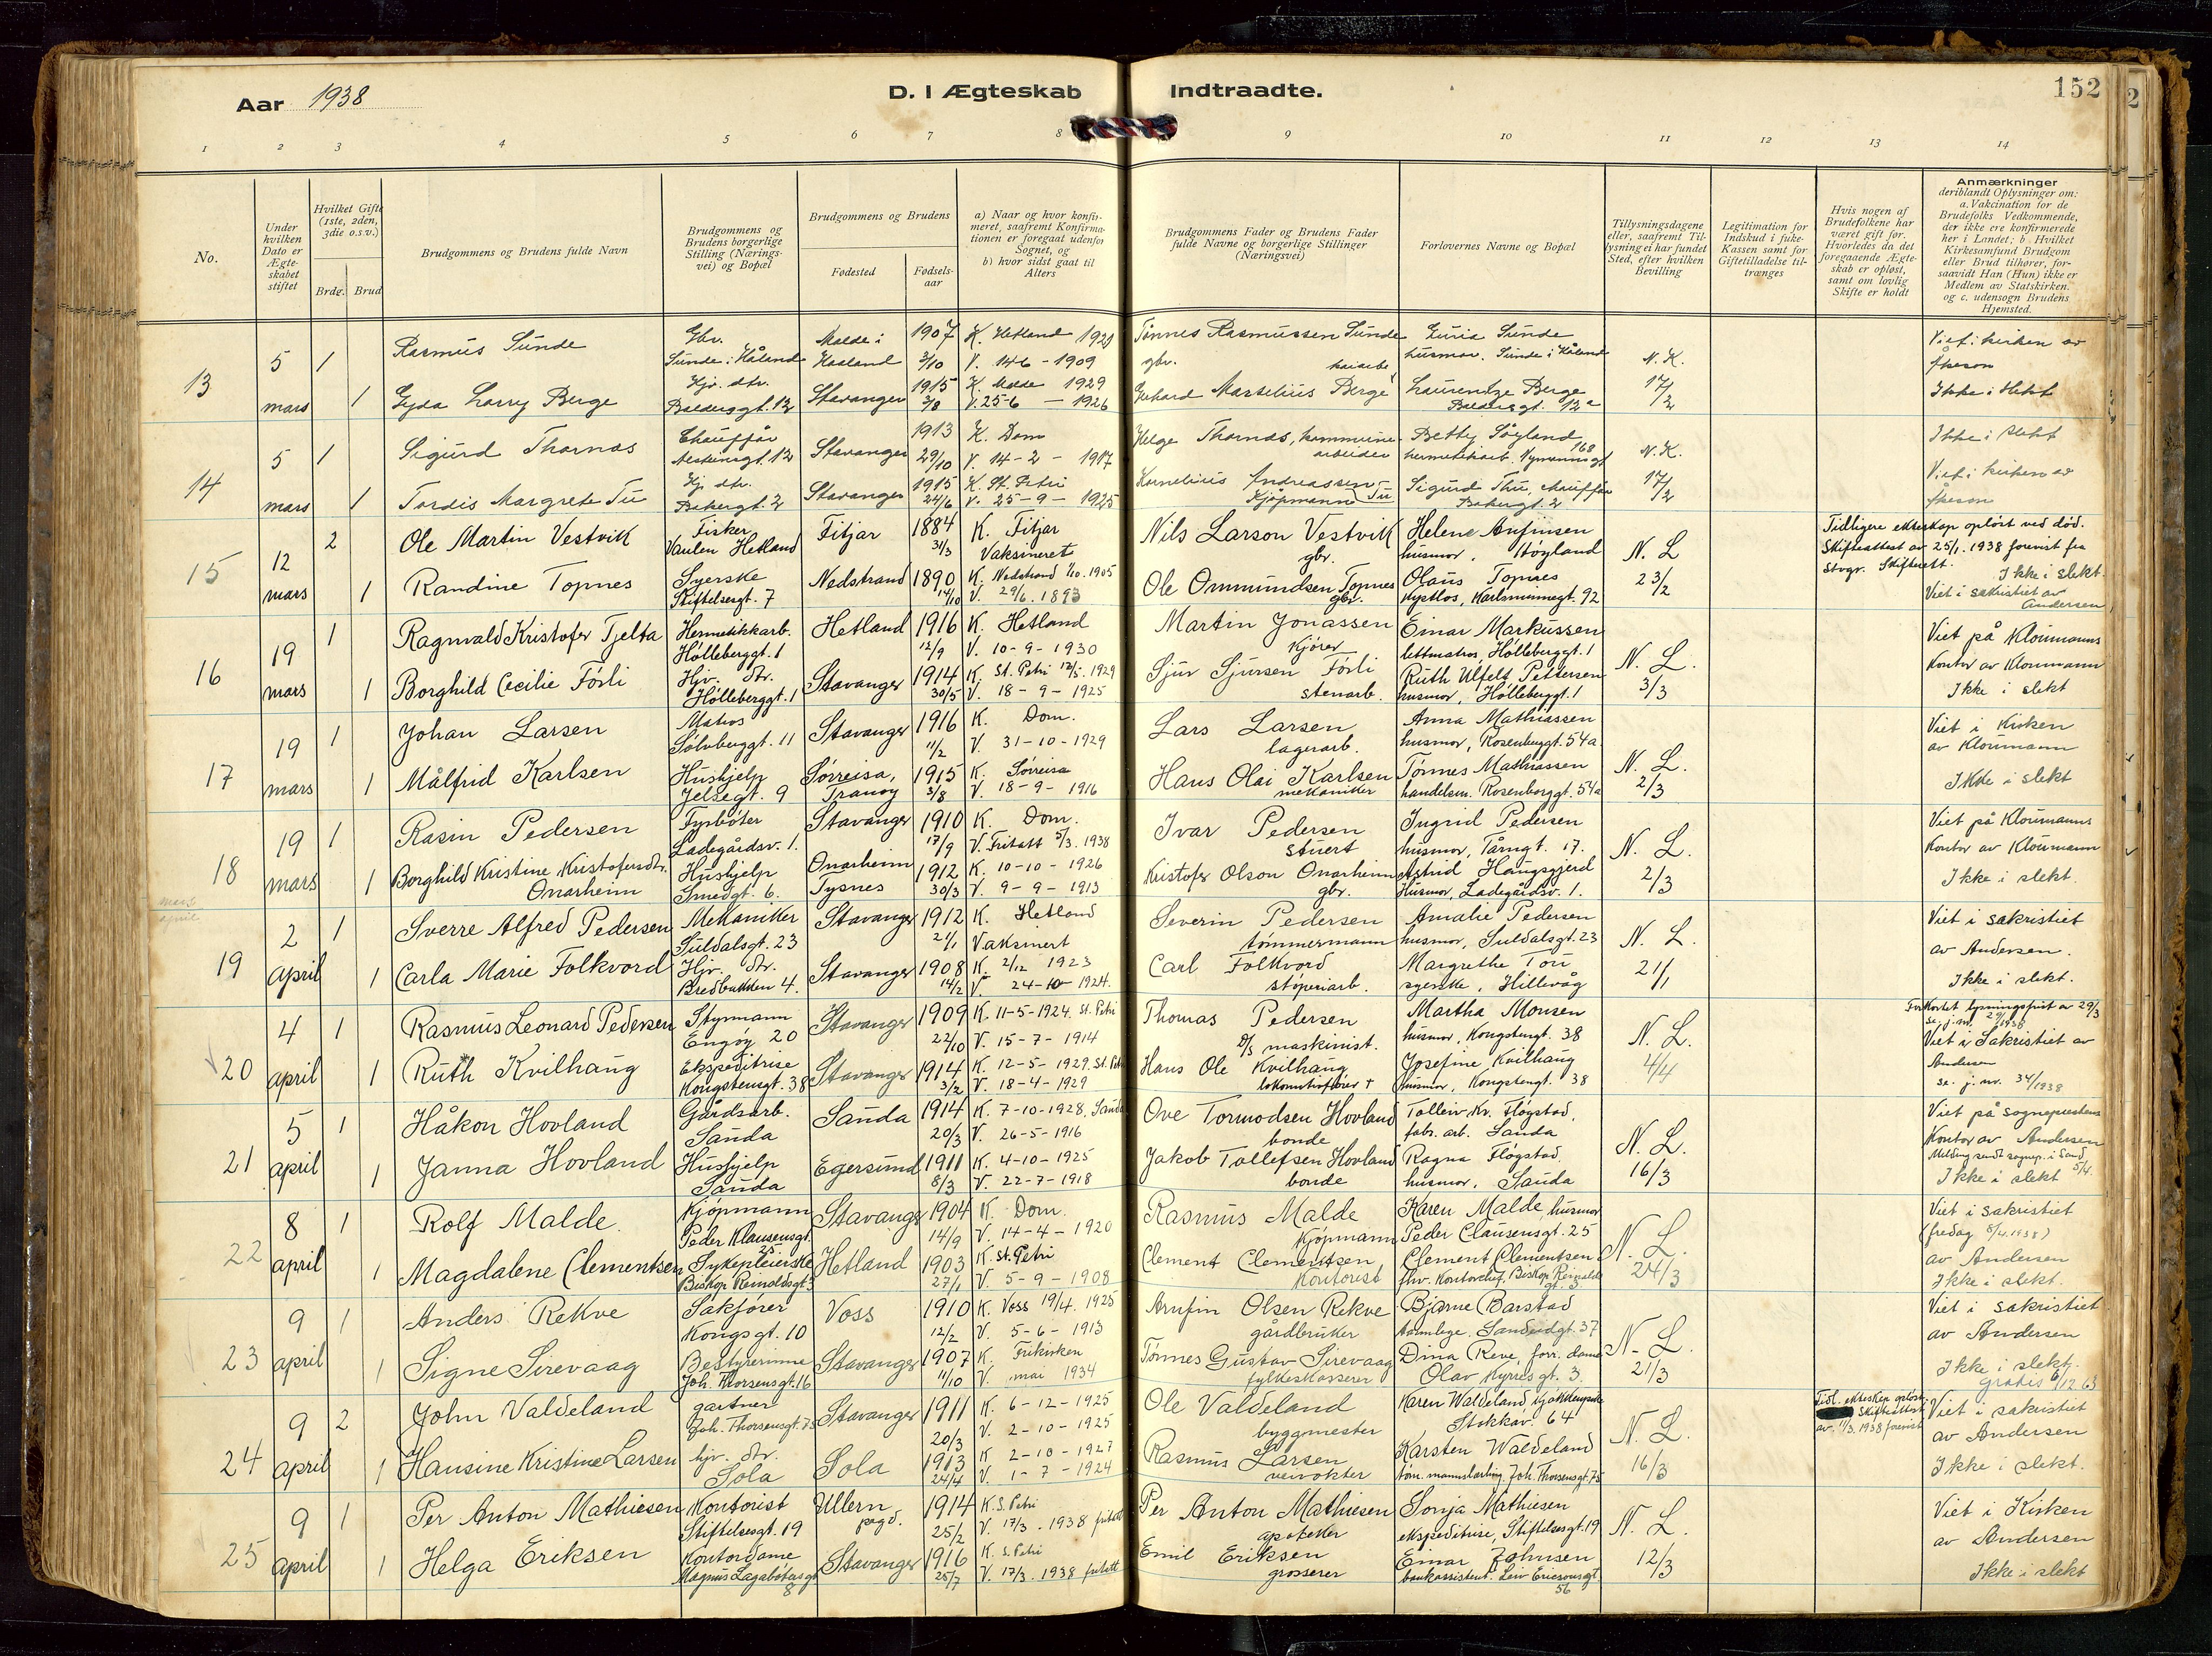 Aar 1938
D. I Ægteskab Indtraadte.
152
1 2 3 4 5 6 7 8 9 10 11 12 13 14
No.
Under hvilken Dato er Ægteskabet stiftet
Hvilket Gifte (1ste, 2den, 3die o.s.v.)
Brdg. Brud
Brudgommens og Brudens fulde Navn
Brudgommens og Brudens borgerlige Stilling (Næringsvei) og Bopæl
Brudgommens og Brudens
Fødested
Fødselsaar
a) Naar og hvor konfirmeret, saafremt Konfirmationen er foregaat udenfor Sognet, og
b) hvor sidst gaat til Alters
Brudgommens Fader og Brudens Fader fulde Navne og borgerlige Stillinger (Næringsvei)
Forlovernes Navne og Bopæl
Tillysningsdagene eller, saafremt Tillysning ei har fundet Sted, efter hvilken Bevilling
Legitimation for Indskud i fuke-Kassen samt for Giftetilladelse tiltrænges
Hvis nogen af Brudefolkene har været gift før. Hvorledes da det foregaaende Ægteskab er opløst, samt om lovlig Skifte er holdt
Anmærkninger
deriblandt Oplysninger om: a. Vakcination for de Brudefolks Vedkommende, der ikke ere konfirmerede her i Landet; b. Hvilket Kirkesamfund Brudgom eller Brud tilhører, forsaavidt Han (Hun) ikke er Medlem av Statskirken. og c. udensogn Brudens Hjemsted.
13 5 mars 1 Rasmus Sunde Gbr. Sunde i Håland 1907 3/10 K. Hetland 1921 V. 14-6-1909 Tønnes Rasmussen Sunde gbr. Sunde husmor. Sunde i Håland N.K. 17/2 Viet i kirken av
1 Gyda Berge Hjv. dtr. Baldersgt. 12 Stavanger 1915 3/8 K. Molde 1929 V. 25-6-1926 Marselius Berge Berge Baldersgt. 12a Ikke i slekt
14 5 mars 1 Sigurd Thornas Chauffør Stavanger 1913 29/10 K. Dom V. 14-2-1917 Helge Thornas, kommunearbeider Betty Søyland hermetikkarb. Nymannsgt 168 N.K. 17/2 Ikke i slekt
1 Tordis Margrete Tu Hj. dtr. Bakergt. 2 Stavanger 1915 24/6 K. St. Petri V. 25-9-1925 Kornelius Andreassen Tu Kjøpmann Sigurd Thu, chauffør Bakergt. 2 Viet i kirken av
15 12 mars 2 Ole Martin Vestvik Fisker Vaulen Hetland Fitjar 1884 31/3 K. Fitjar Vaksineret Nils Larson Vestvik gbr. Helene Anfinsen husmor, Høyland N. L 23/2 Tidligere ekteskap opløst ved død. Skifteattest av 25/1.1938 forevist fra Stvgr. Skifterett. Ikke i slekt.
1 Randine Topnes Syerske Stiftelsesgt. 7 Nedstrand 1890 14/10 K. Nedstrand 1/10.1905 V. 29/6.1893 Ole Ommundsen Topnes gbr. Olaus Topnes Karlsminnegt. 92 Viet i sakristiet av Andersen
16 19 mars 1 Ragnvald Kristofer Tjelta Hermetikkarb. Hølleberggt. 1 Hetland 1916 12/9 K. Hetland V. 10-9-1930 Martin Jonassen Kjører Einar Markussen lettmatros, Hølleberggt. 1 N. L. 3/3 Viet på Kloumanns Kontor av Kloumann
1 Borghild Cecilie Førli Hjv. dtr. Hølleberggt. 1 Stavanger 1914 30/5 K. St. Petri 12/5.1929 V. 18-9-1925 Sjur Sjursen Førli stenarb. Ruth Ulfelt Pettersen husmor, Hølleberggt. 1 Ikke i slekt
17 19 mars 1 Johan Larsen Matros Sølvberggt. 11 Stavanger 1916 11/2 K. Dom. V. 31-10-1929 Lars Larsen lagerarb. Anna Mathiassen husmor, Rosenberggt. 54a N. L. 2/3 Viet i Kirken av Kloumann
1 Målfrid Karlsen Hushjelp Jelsegt. 9 Sørreisa, Tranøy 1915 3/8 K. Sørreisa V. 18-9-1916 Hans Olai Karlsen mekaniker Tønnes Mathiassen handelsm. Rosenberggt. 54a Ikke i slekt
18 19 mars 1 Rasin Pedersen Fyrbøter Ladegårdsv. 1. Stavanger 1910 17/9 K. Dom. V. Fritatt 5/3.1938 Ivar Pedersen stuert Ingrid Pedersen husmor, Tårngt. 17. N. L. 2/3 Viet på Kloumanns Kontor av Kloumann
1 Borghild Kristine Kristofersdtr. Onarheim Hushjelp Smedgt. 6. Onarheim Tysnes 1912 30/3 K. 10-10-1926 V. 9-9-1913 Kristofer Olson Onarheim gbr. Astrid Haugsgjerd Husmor, Ladegårdsv. 1. Ikke i slekt.
mars
april
19 2 april 1 Sverre Alfred Pedersen Mekaniker Suldalsgt. 23 Stavanger 1912 21/1 K. Hetland Vaksinert Severin Pedersen tømmermann Amalie Pedersen husmor, Suldalsgt. 23 N. L. 21/1 Viet i sakristiet av Andersen.
1 Carla Marie Folkvord Hjv. dtr. Bredbakken 4. Stavanger 1908 14/2 K. 2/12 1923 V. 24-10-1924. Carl Folkvord støperiarb. Margrethe Tou syerske, Hillevåg Ikke i slekt.
20 4 april 1 Rasmus Leonard Pedersen Styrmann Engøy 20 Stavanger 1909 22/10 K. 11-5-1924. St. Petri V. 15-7-1914 Thomas Pedersen D/S maskinist. Martha Monsen husmor, Kongstensgt. 38 N. L. 4/4 Forkortet lysningsfrist av 29/3 Viet i Sakristiet av Andersen
1 Ruth Kvilhaug Ekspeditrise Kongstensgt. 38 Stavanger 1914 3/2 K. 12-5-1929. St. Petri V. 18-4-1929 Hans Ole Kvilhaug lokomotivfører + Josefine Kvilhaug husmor, Kongstengt. 38 se. j. nr. 34/1938
21 5 april 1 Håkon Hovland Gårdsarb. Sauda Sauda 1914 20/3 K. 7-10-1928, Sauda V. 26-5-1916 Ove Tormodsen Hovland bonde Tolleiv Kr. Fløgstad, fabr. arb. Sauda N. L. 16/3 Viet på sogneprestens Kontor av Andersen
1 Janna Hovland Hushjelp Sauda Egersund 1911 8/3 K. 4-10-1925 V. 22-7-1918 Jakob Tollefsen Hovland bonde Ragna Fløgstad, husmor, Sauda Melding sendt sognep. i Sand 5/4. Ikke i slekt
22 8 april 1 Rolf Malde. Kjøpmann Peder Klausensgt. 25 Stavanger 1904 14/9 K. Dom. V. 14-4-1920 Rasmus Malde Kjøpmann Karen Malde husmor Peder Clausensgt. 25 N. L. 24/3 Viet i sakristiet (fredag 8/4.1938) av Andersen
1 Magdalene Clementsen Sykepleierske Biskop Reinaldsgt. 3 Hetland 1903 27/1 K. St. Petri V. 5-9-1908 Clement Clementsen Kontorist Clement Clementsen fhv. Kontorchef, Biskop Reinalds gt. 3 Ikke i slekt.
23 9 april 1 Anders Rekve Sakfører Kongsgt. 10 Voss 1910 12/2 K. Voss 19/4. 1925 V. 5-6-1913 Arnfin Olsen Rekve gårdbruker Bjarne Barstad tannlege. Sandeidgt. 37 N. L. 21/3 Viet i sakristiet av Andersen
1 Signe Sirevaag Bestyrerinne Joh. Thorsensgt. 16 Stavanger 1907 11/10 K. Frikirken V. mai 1934 Tønnes Gustav Sirevaag fylkeskasserer Dina Reve, forr. dame Olav Kyrres gt. 3. Ikke i slekt. Gratis 6/12.63
24 9 april 2 John Valdeland gartner Joh. Thorsensgt. 75 Stavanger 1911 20/3 K. 6-12-1925 V. 2-10-1925 Ole Valdeland byggmester Karen Waldeland Stokkav. 64 N. L. 16/3 Tidl. ekteskap opløst. Skifteattest av 11/3.1938 forevist Viet i sakristiet av Andersen
1 Hansine Kristine Larsen hjv. dtr. Sola Sola 1913 24/4 K 2-10-1927 V. 1-7-1924 Rasmus Larsen veivokter Karsten Waldeland tøm. mannslærling. Joh. Thorsensgt. 75 Ikke i slekt.
25 9 april 1 Per Anton Mathiesen Kontorist Stiftelsesgt. 19 Ullern pgd. 1914 25/2 K. S. Petri V. 17/3.1938 fritatt Per Anton Mathiesen apoteker Sonja Mathiesen ekspeditrise, Stiftelsesgt. 19 N. L. 12/3 Viet i Kirken av Andersen
1 Helga Eriksen Kontordame Magnus Lagabøtersgt 8 Stavanger 1916 25/7 K. S. Petri V. 17/3.1938 fritatt Emil Eriksen grosserer Einar Johnsen bankassistent. Leiv Ericsonsgt. 56 Ikke i slekt